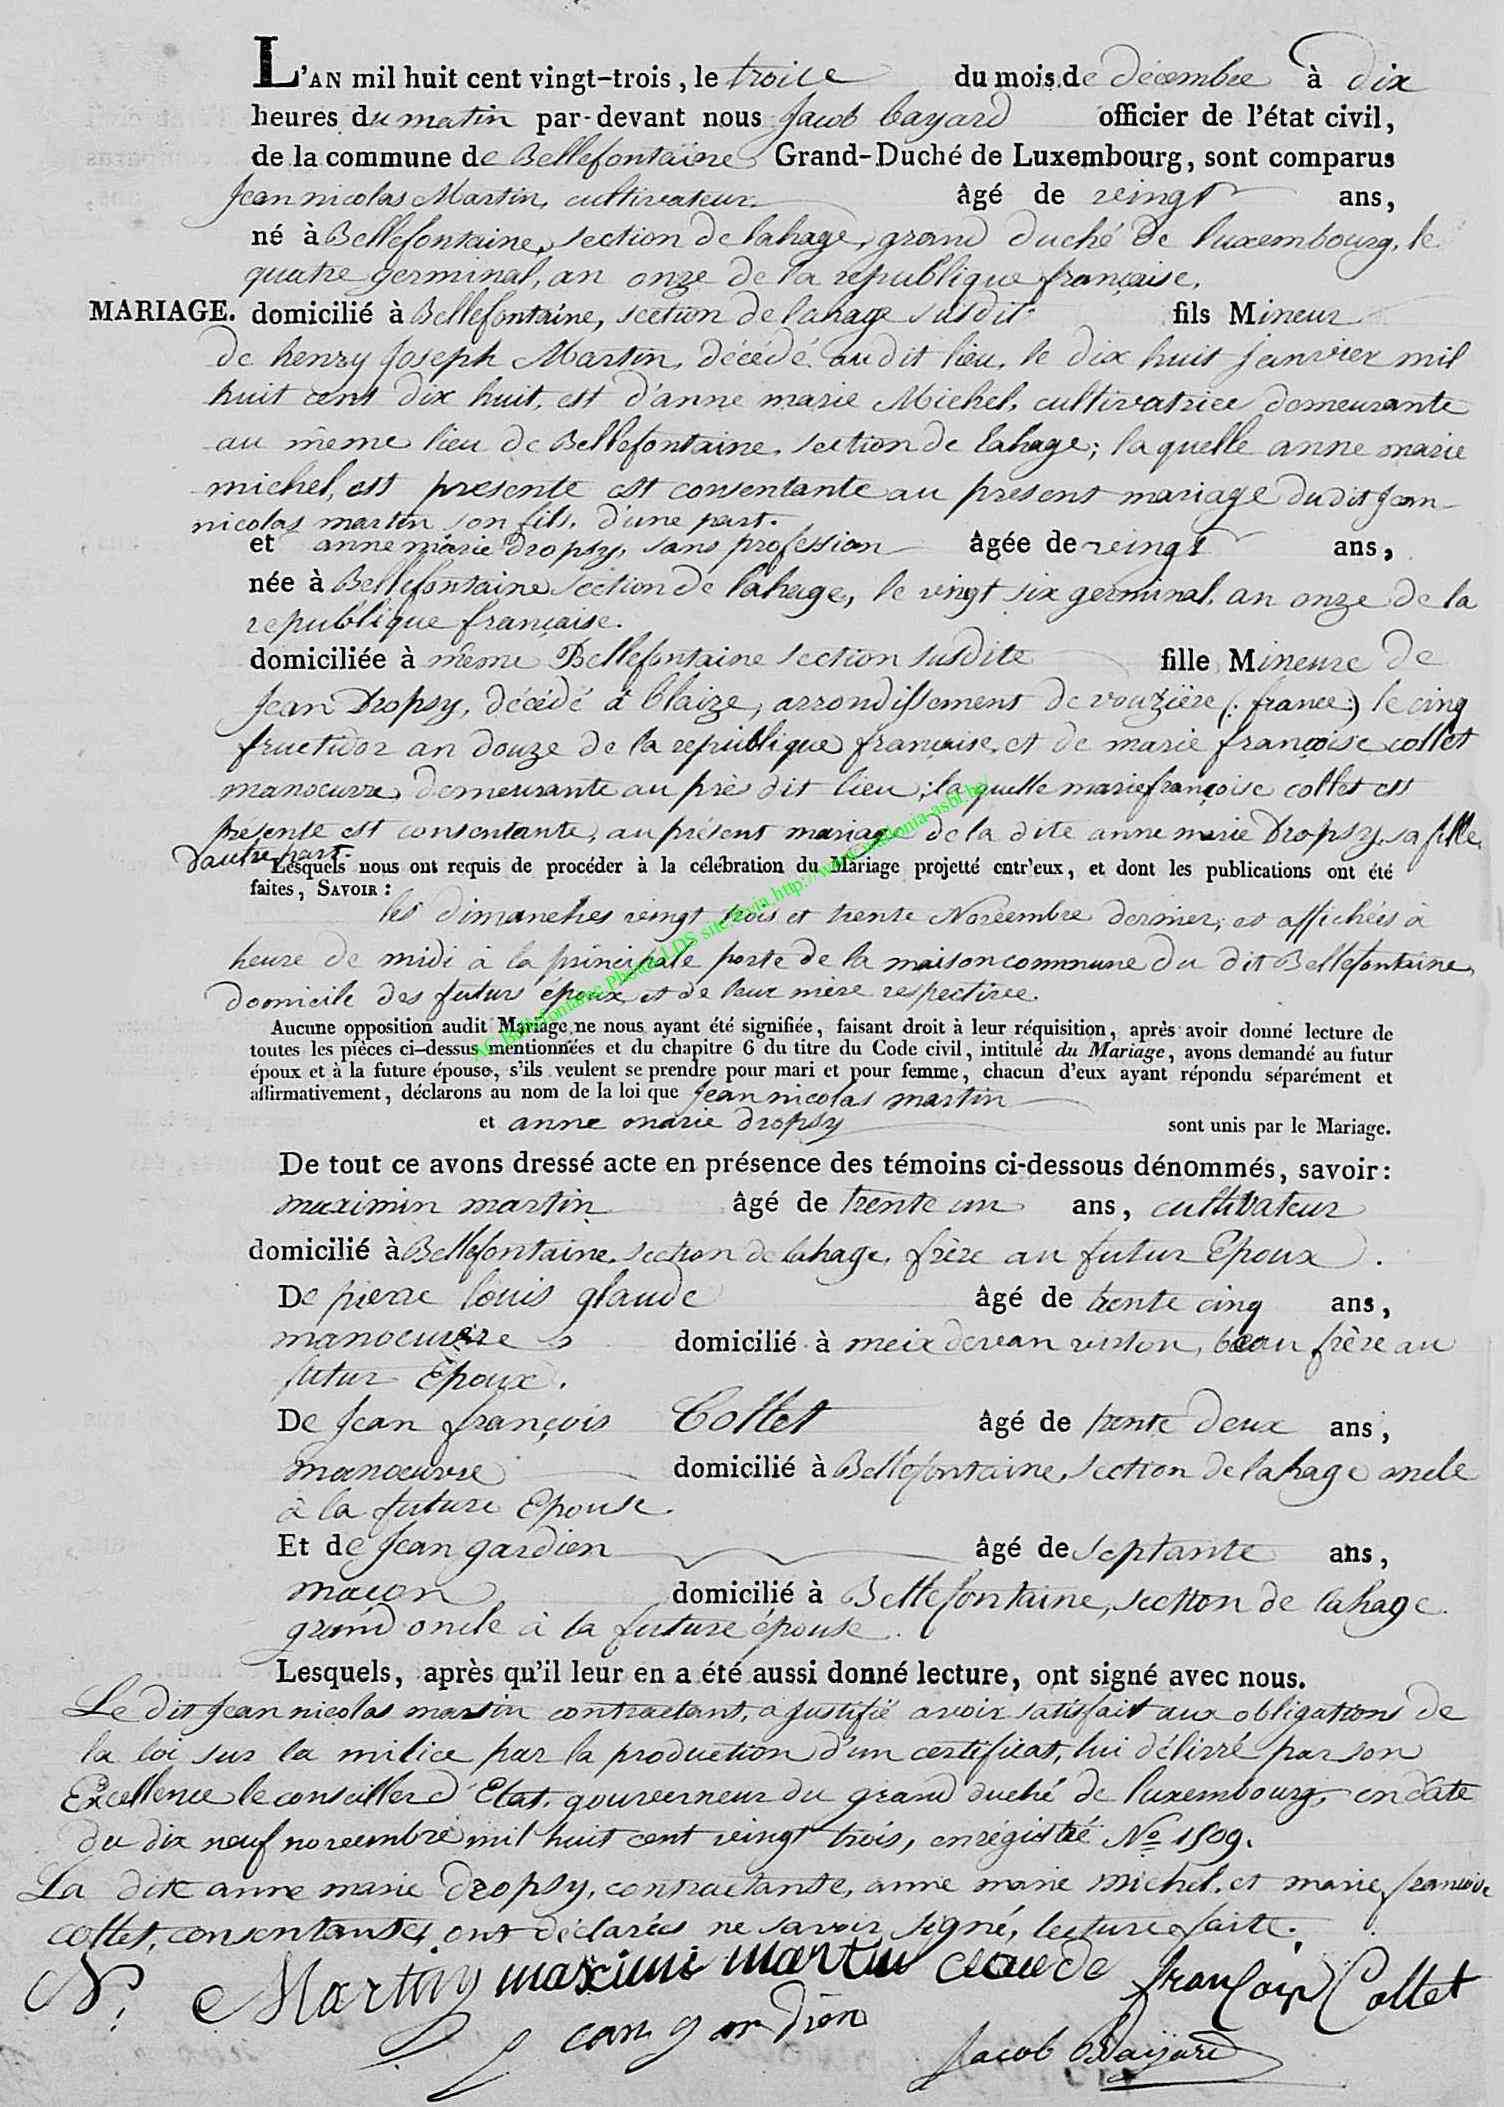 L'AN mil huit cent vingt-trois, le troise du mois de décembre à dix
heures du matin par-devant nous Jacob bayard officier de l'état civil,
de la commune de Bellefontaine Grand-Duché de Luxembourg, sont comparus
Jean nicolas Martin, cultivateur âgé de vingt ans,
né à Bellefontaine, section de lahage, grand duché de luxembourg, le
quatre germinal, an onze de la republique française.
MARIAGE. domicilié à Bellefontaine, section de lahage susdit fils Mineur
de henry Joseph Martin, décédé au dit lieu, le dix huit janvier mil
huit cent dix huit, est d'anne marie Michel, cultivatrice demeurante
au même lieu de Bellefontaine, section de lahage; la quelle anne marie
michel, est presente est consentante au present mariage du dit Jean
nicolas martin son fils, d'une part.
et anne marie Dropsy, sans profession âgée de vingt ans,
née à Bellefontaine section de lahage, le vingt six germinal, an onze de la
republique française.
domiciliée à même Bellefontaine section susdite fille Mineure de
Jean Dropsy, décédé à blaize, arrondissement de vouzière (: france :) le cinq
fructidor an douze de la republique française, et de marie françoise collet
manoeuvre, demeurante au prè dit lieu; la quelle marie françoise collet est
presente est consentante, au présent mariage de la dite anne marie Dropsy, sa fille,
d'autre part.
Lesquels nous ont requis de procéder à la célébration du Mariage projetté entr'eux, et dont les publications ont été
faites, SAVOIR :
les dimanches vingt trois et trente Novembre dernier, et affichées à
heure de midi à la principale porte de la maison commune du dit Bellefontaine,
domicile des futurs epoux et de leur mère respective.
Aucune opposition audit Mariage ne nous ayant été signifiée, faisant droit à leur réquisition, après avoir donné lecture de
toutes les pièces ci-dessus mentionnées et du chapitre 6 du titre du Code civil, intitulé du Mariage, avons demandé au futur
époux et à la future épouse, s'ils veulent se prendre pour mari et pour femme, chacun d'eux ayant répondu séparément et
affirmativement, déclarons au nom de la loi que Jean nicolas martin
et anne marie dropsy sont unis par le Mariage.
De tout ce avons dressé acte en présence des témoins ci-dessous dénommés, savoir :
maximin martin âgé de trente un ans, cultivateur
domicilié à Bellefontaine, section de lahage, frère au futur Epoux.
De pierre louis glaude âgé de trente cinq ans,
manoeuvre domicilié à meix devan virton, beau frère au
futur Epoux.
De Jean françois Collet âgé de trente deux ans,
manoeuvre domicilié à Bellefontaine, section de lahage oncle
à la future Epouse.
Et de Jean gardien âgé de septante ans,
maçon domicilié à Bellefontaine, section de lahage
grand oncle à la future épouse.
Lesquels, après qu'il leur en a été aussi donné lecture, ont signé avec nous.
Le dit Jean nicolas martin contractant, a justifié avoir satisfait aux obligations de
la loi sur la milice par la production d'un certificat, lui délivré par son
Excellence le conseiller d'Etat, gouverneur du grand duché de luxembourg, en date
du dix neuf novembre mil huit cent vingt trois, enrégistré No 1509.
La dite anne marie Dropsy, contractante, anne marie Michel, et marie françoise
collet, consentantes, ont déclarées ne savoir signé, lecture faite.
N. Martin maximi martin claude françois Collet
Jean gardien
Jacob Bayard